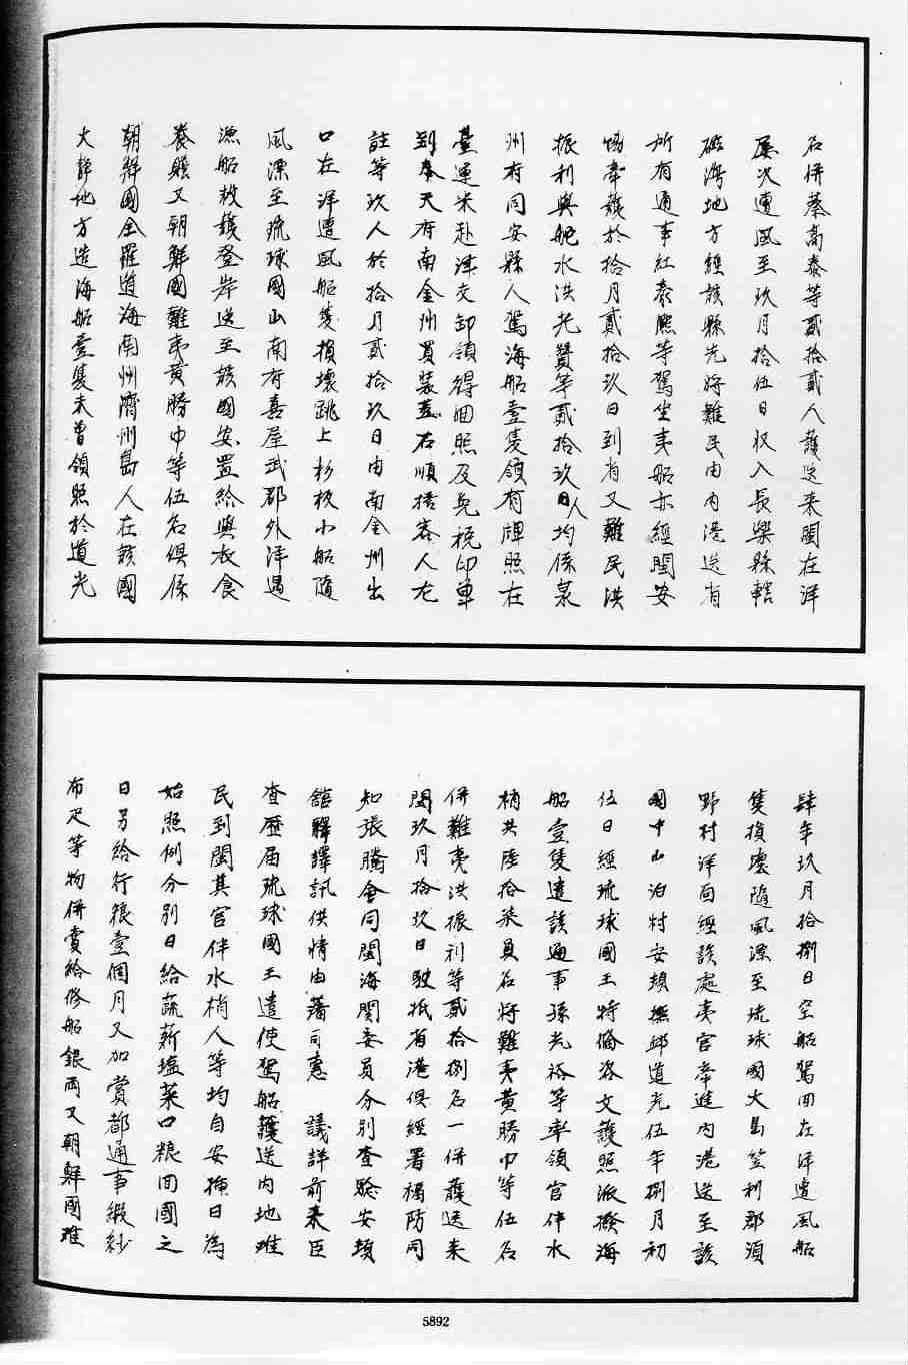 名併蔡高泰等貳拾貳人護送来閩在洋
屡次遭風至玖月拾伍日収入長樂縣轄
磁澳地方經該縣先將難民由内港送省
所有通事紅泰熙等駕坐夷船亦經閩安
協牽護於拾月貳拾玖日到省又難民洪
振利興舵水洪光贊等貳拾玖人均係泉
州府同安縣人駕海船壹隻領有牌照在
臺運米赴津交卸領得囬照及免税印單
到奉天府南金州買装荳石順搭客人尤
註等玖人於拾月貳拾玖日由南金州出
口在洋遭風船隻損壞跳上杉板小船隨
風漂至琉球國山南府喜屋武郡外洋遇
漁船救護登岸送至該國安置給與衣食
養贍又朝鮮國難夷黄勝巾等伍名俱係
朝鮮國全羅道海南州濟州島人在該國
大静地方造海船壹隻未曾領照於道光
肆年玖月拾捌日空船駕回在洋遭風船
隻損壞隨風漂至琉球國大島笠利郡須
野村洋面經該處夷官牽進内港送至該
國中山泊村安頓撫䘏道光伍年捌月初
伍日經琉球國王特俻咨文護照派撥海
船壹隻遣該通事孫光裕等率領官伴水
梢共陸拾柒員名將難夷黄勝巾等伍名
併難夷洪振利等貳拾捌名一併護送来
閩玖月拾玖日駛抵省港俱經署福防同
知張騰會同閩海関委員分別查驗安頓
館驛譯訊供情由藩司惠　議詳前来臣
查歷届琉球國王遣使駕船護送内地难
民到閩其官伴水梢人等均自安揷日為
始照例分別日給蔬薪塩菜口粮囬國之
日另給行粮壹個月又加賞都通事緞紗
布疋等物併賞給修船銀両又朝鮮國难
5892